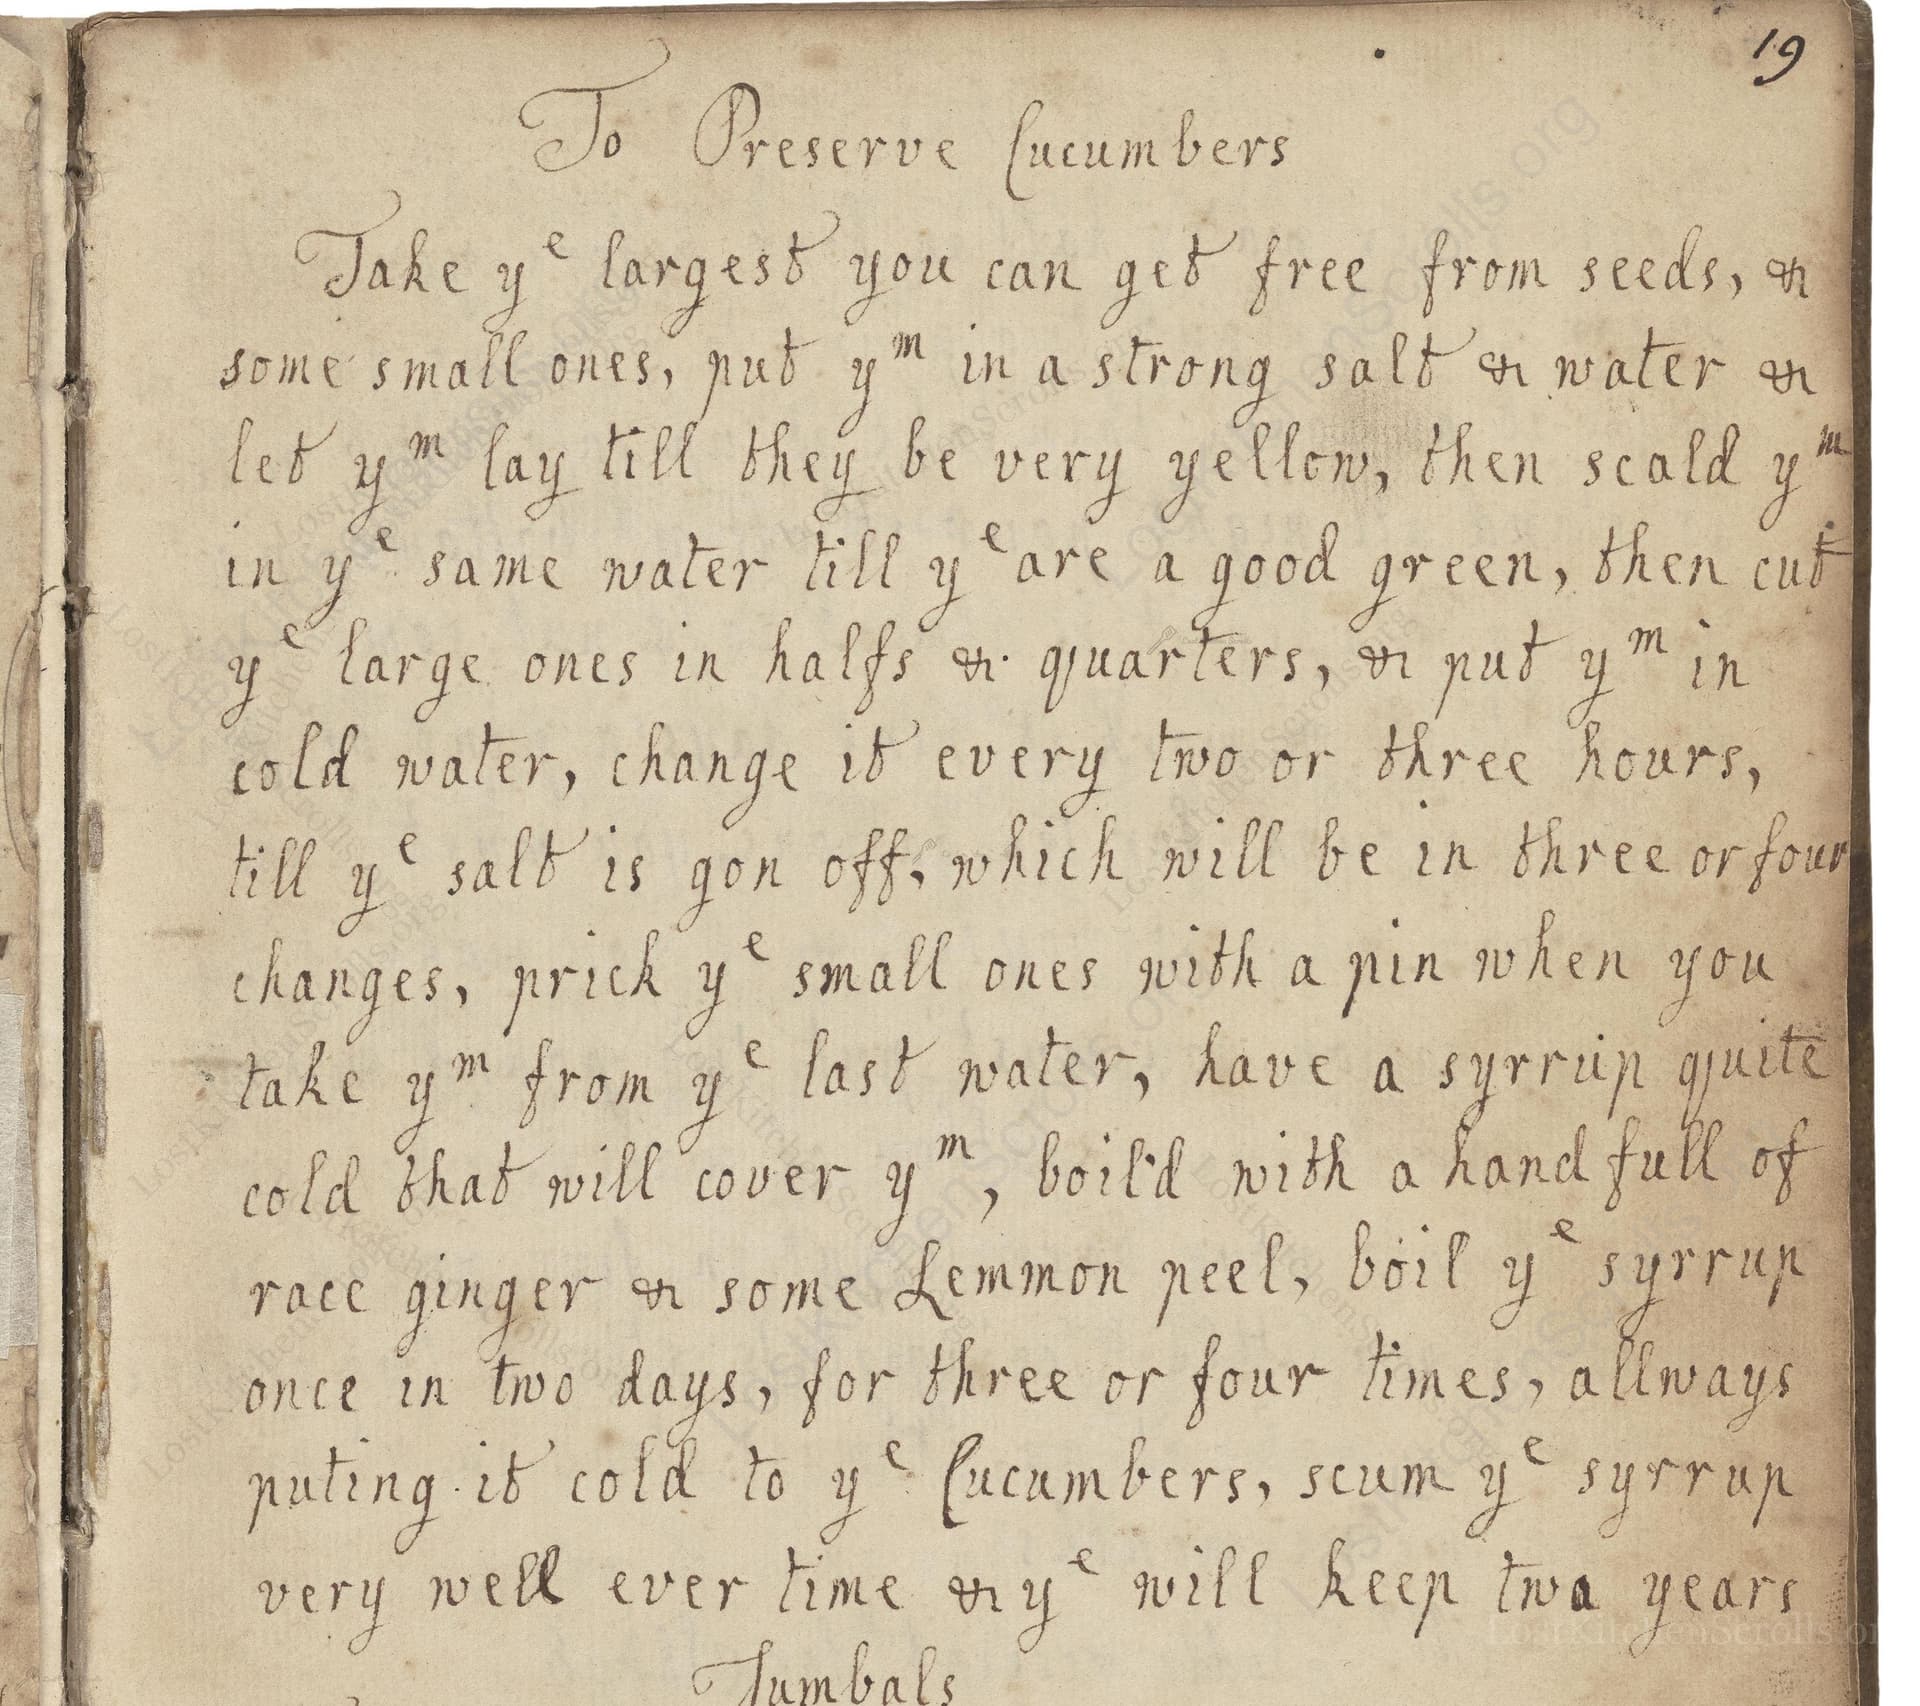 19
To Preserve Cucumbers
Take yᵉ largest you can get free from seeds, &
some small ones, put yᵐ in a strong salt & water &
let yᵐ lay till they be very yellow, then scald yᵐ
in yᵉ same water till yᵉ are a good green, then cut
yᵉ large ones in halfs & quarters, & put yᵐ in
cold water, change it every two or three hours,
till yᵉ salt is gon off, which will be in three or four
changes, prick yᵉ small ones with a pin when you
take yᵐ from yᵉ last water, have a syrrup quite
cold that will cover yᵐ, boil'd with a hand full of
race ginger & some Lemmon peel, boil yᵉ syrrup
once in two days, for three or four times, allways
puting it cold to yᵉ Cucumbers, scum yᵉ syrrup
very well ever time & yᵉ will keep two years
Jumbals
LostKitchenScrolls.org